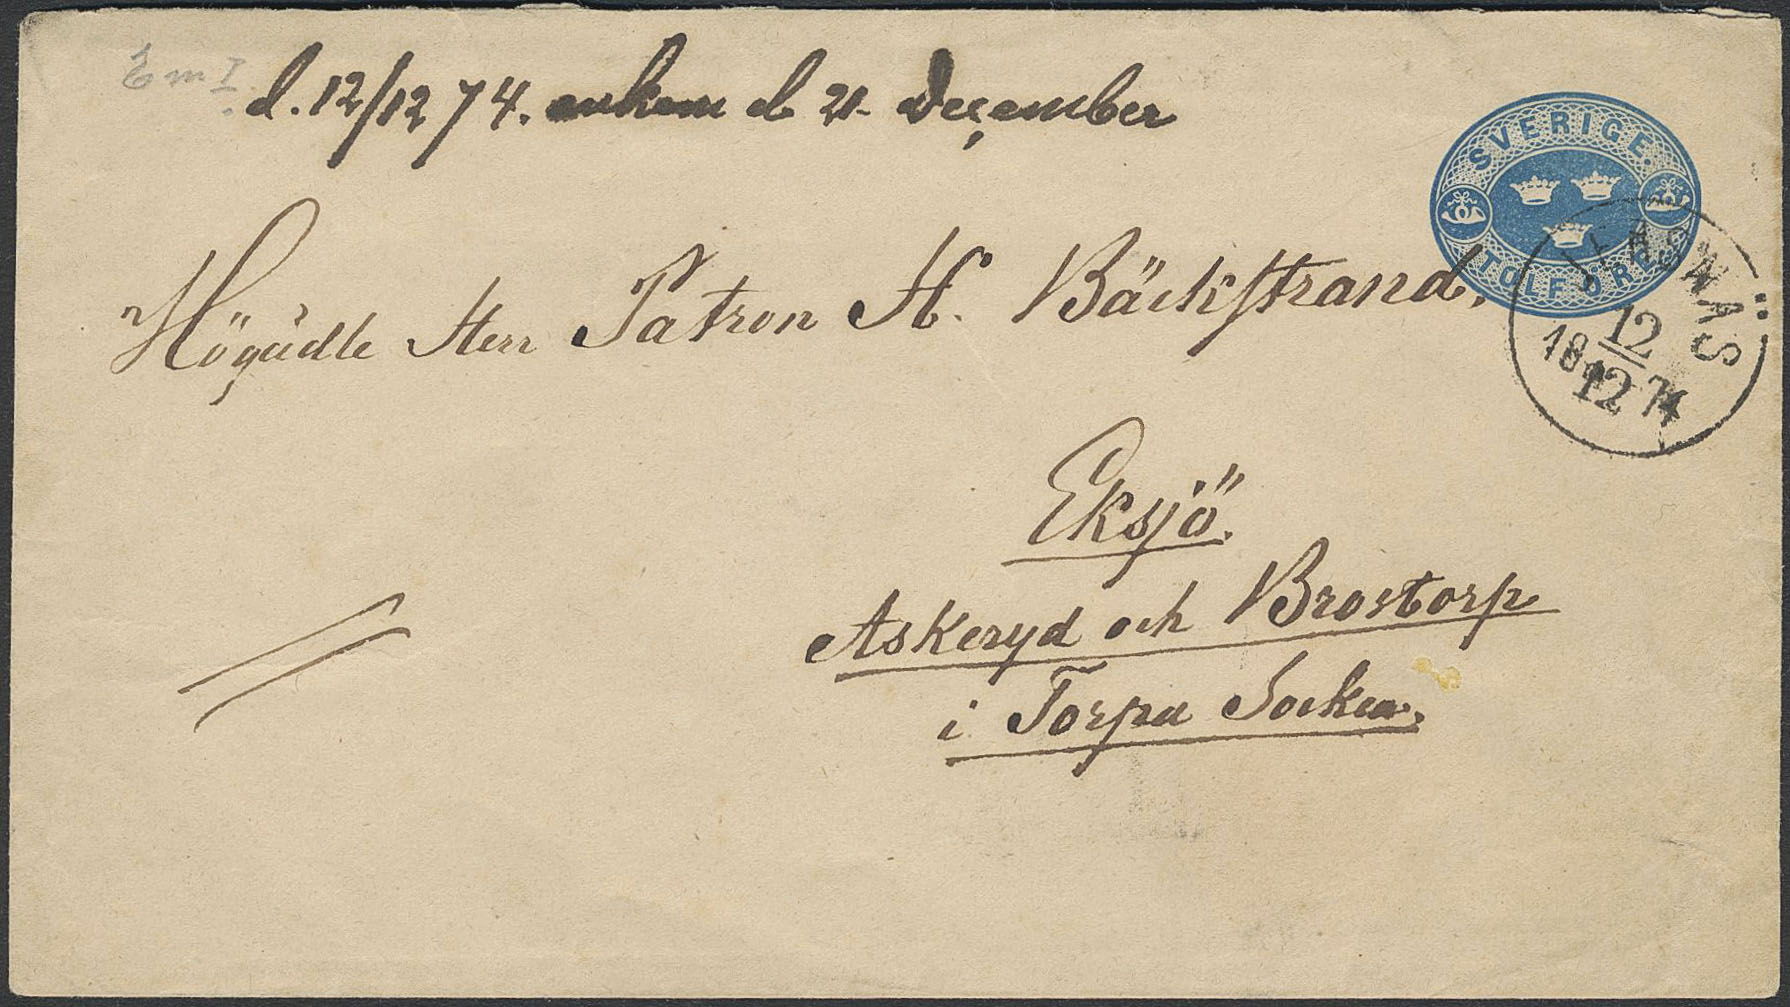 Em I.
d. 12/12 74. ankom d 21. December
SVERIGE
TOLF ÖRE
Högädle Herr Patron H. Bäckstrand.
12
12
18 74
Eksjö.
Askeryd och Brostorp
i Torpa Socken.